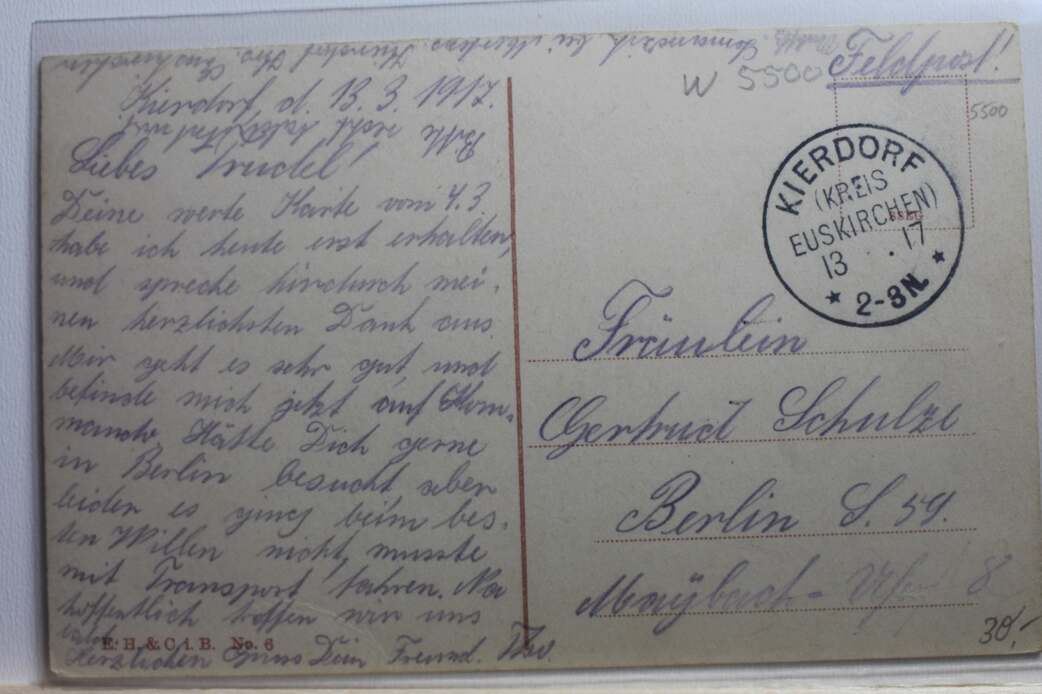 Feldpost!
W 5500
5500
Kierdorf, d. 13.3.1917.
Bitte recht
Liebes Trudel!
Deine werte Karte vom 4.3
habe ich heute erst erhalten,
und spreche hirdurch mei-
nen herzlichsten Dank aus
Mir geht es sehr gut und
befinde mich jetzt auf Kom-
mando. Hätte Dich gerne
in Berlin besucht, aber
leider es ging beim bes-
ten Willen nicht, musste
mit Transport fahren. Na
hoffentlich treffen wir uns
Herzlichen Gruss Dein Freund.
E. B. & C. i. B. No. 6
KIERDORF
(KREIS
EUSKIRCHEN)
13 . . 17
* 2-3N. *
Fräulein
Gertrud Schulze
Berlin S. 59.
Maybach-Ufer 8
30,-